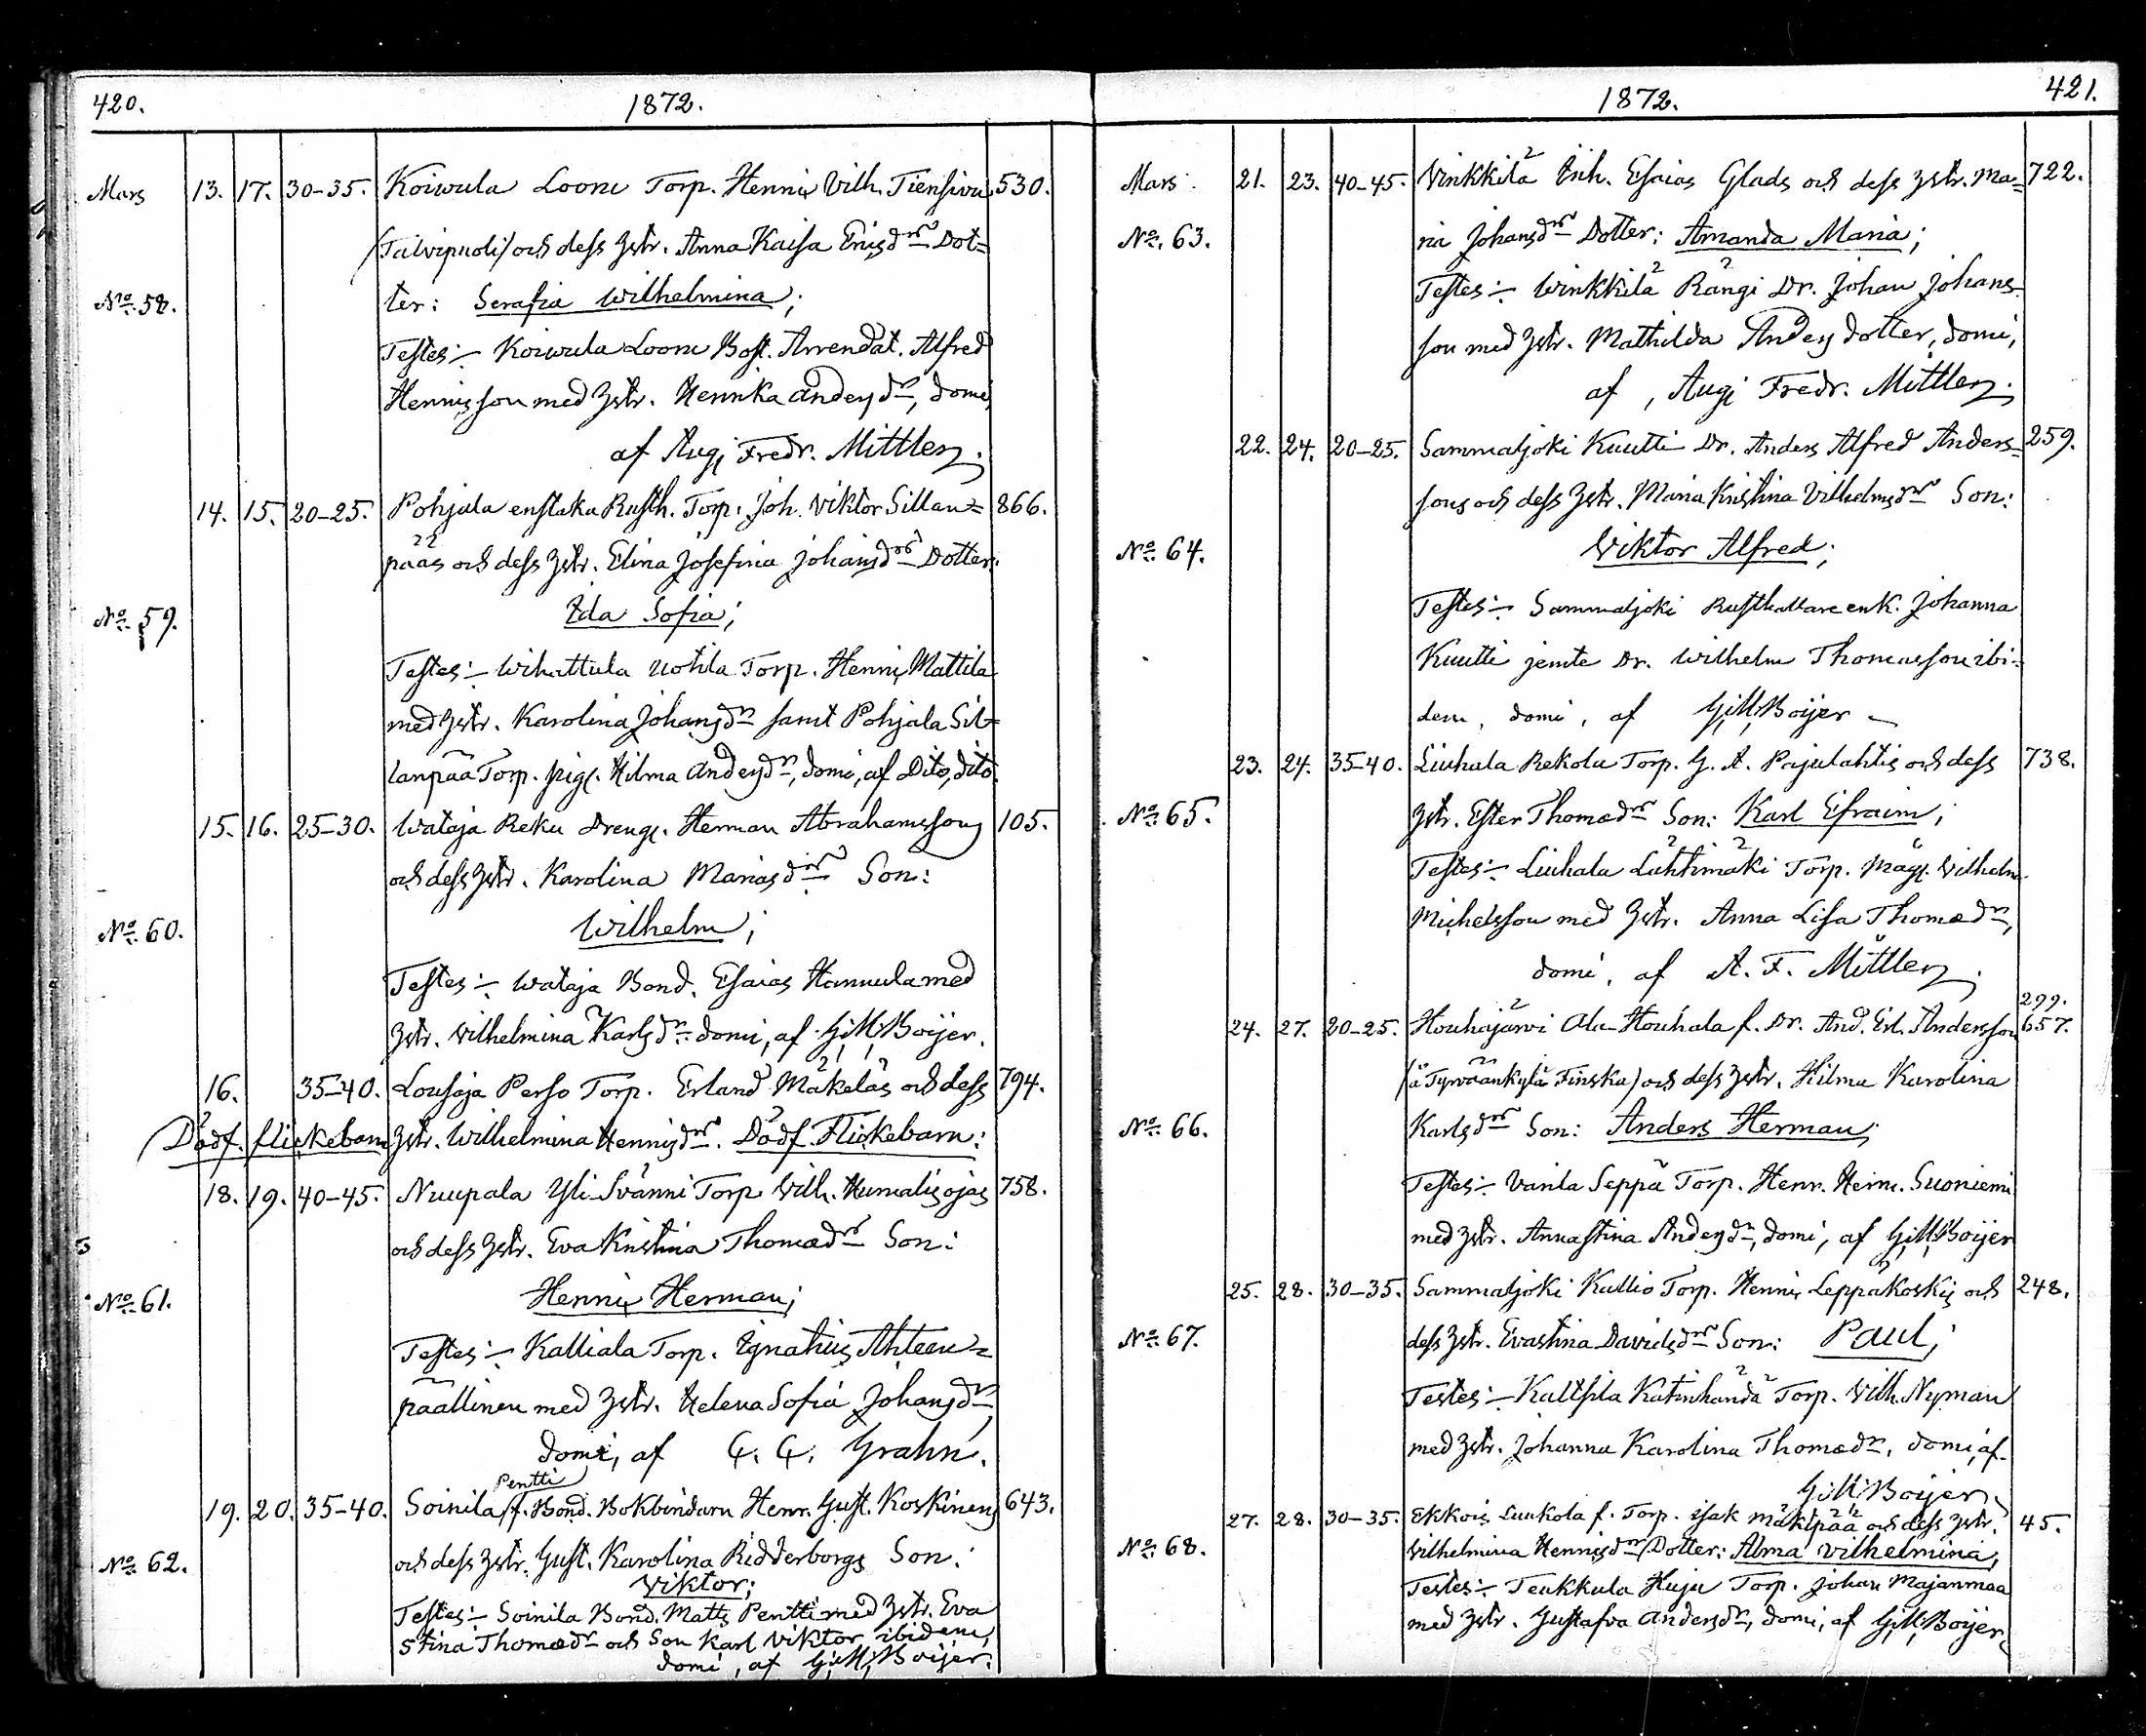 420.
1872.
Mars 13. 17. 30-35. Koiwula Loom Torp. Henric Vilh. Tiensivu 530.
(Talvipuoli) och dess hstr. Anna Kaisa Ericsdrs Dot=
No. 58. ter: Serafia Wilhelmina;
Testes:- Koiwula Loom Bost. Arrendat. Alfred
Henricsson med hstr. Henrika Andersdr, domi,
af Aug. Fredr. Mittler.
14. 15. 20-25. Pohjala enstaka Rusth. Torp. Joh. Viktor Sillan= 866.
pääs och dess hstr. Elina Josefina Johansdrs Dotter:
No. 59. Ida Sofia;
Testes:- Wihattula Uotila Torp. Henric Mattila
med hstr. Karolina Johansdr samt Pohjala Sil=
lanpää Torp. pig. Hilma Andersdr, domi, af Dito, dito.
15. 16. 25-30. Wataja Reku Dreng. Herman Abrahamssons 105.
och dess hstr. Karolina Mariasdrs Son:
No. 60. Wilhelm;
Testes:- Wataja Bond. Esaias Hannula med
hstr. Wilhelmina Karlsdr domi, af G. M. Boijer.
16. 35-40. Lousaja Perho Torp. Erland Mäkeläs och dess 794.
Dödf. flickebarn hstr. Wilhelmina Henricsdrs. Dödf. Flickebarn:
18. 19. 40-45. Nuupala Yli-Svänni Torp Vilh. Humalisojas 758.
och dess hstr. Eva Kristina Thomædrs Son:
No. 61. Henric Herman;
Testes:- Kalliala Torp. Ignatius Ahteen=
päällinen med hstr. Helena Sofia Johansdr,
domi, af C. C. Grahn.
Pentti
19. 20. 35-40. Soinila f. Bond. Bokbindarn Henr. Gust. Koskinens 643.
No. 62. och dess hstr. Gust. Karolina Ridderborgs Son:
Viktor;
Testes:- Soinila Bond. Matts Pentti med hstr. Eva
Stina Thomædr och Son Karl Viktor ibidem,
domi, af G. M. Boijer.
1872.
421.
Mars. 21. 23. 40-45. Vinkkilä Inh. Esaias Glads och dess hstr. Ma= 722.
No. 63. ria Johansdrs Dotter: Amanda Maria;
Testes:- Winkkilä Rängi Dr. Johan Johans=
son med hstr. Mathilda Andersdotter, domi,
af, Aug. Fredr. Mittler.
22. 24. 20-25. Sammaljoki Kuutti Dr. Anders Alfred Anders= 259.
sons och dess hstr. Maria Kristina Vilhelmsdrs Son:
No. 64. Viktor Alfred;
Testes:- Sammaljoki Rusthållare enk. Johanna
Kuutti jemte Dr. Wilhelm Thomasson ibi=
dem, domi, af G. M. Boijer
23. 24. 35-40. Liuhala Rekola Torp. G. A. Pajulahtis och dess 738.
No. 65. hstr. Ester Thomædrs Son: Karl Efraim;
Testes:- Liuhala Lähtimäki Torp. Måg. Wilhelm
Michelsson med hstr. Anna Lisa Thomædr,
domi, af A. F. Mittler.
299.
24. 27. 20-25. Houhajärvi Ala-Houhala f. Dr. And. Erl. Andersson 657.
(å Tyrväänkylä Finska) och dess hstr. Hilma Karolina
No. 66. Karlsdrs Son: Anders Herman;
Testes:- Varila Seppä Torp. Henr. Herm. Suoniemi
med hstr. Annastina Andersdr, domi, af G. M. Boijer
25. 28. 30-35. Sammaljoki Kallio Torp. Henric Leppäkoskis och 248.
No. 67. dess hstr. Evastina Davidsdrs Son: Paul;
Testes:- Kaltsila Katinhändä Torp. Vilh. Nyman
med hstr. Johanna Karolina Thomædr, domi, af
G. M. Boijer.
27. 28. 30-35. Ekkois Luukola f. Torp. Isak Mäkipää och dess hstr. 45.
No. 68. Vilhelmina Henricsdrs Dotter: Alma Vilhelmina;
Testes:- Teukkula Huju Torp. Johan Majanmaa
med hstr. Gustafva Andersdr, domi, af G. M. Boijer.